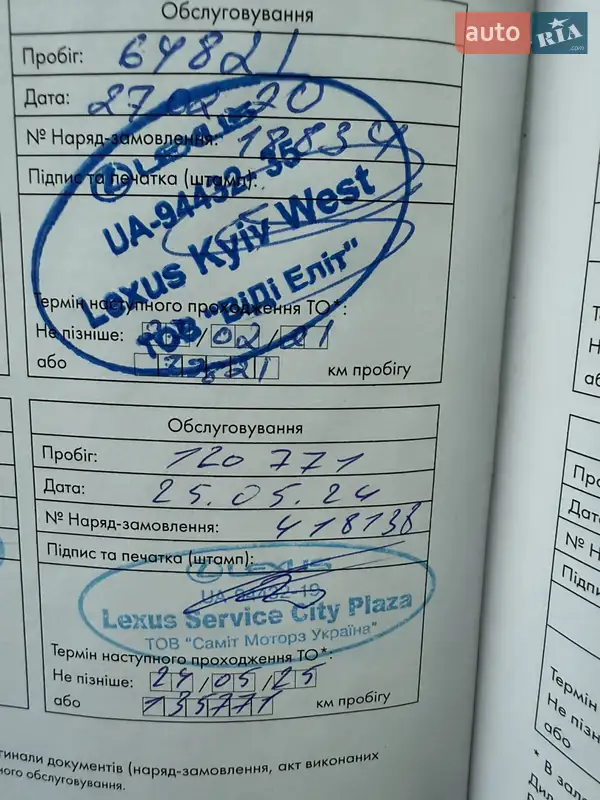 auto RIA .com
Обслуговування
Пробіг: 64821
Дата: 27.02.20
№ Наряд-замовлення: 18834
Підпис та печатка (штамп):
LEXUS
UA-94432-35
Lexus Kyiv West
ТОВ "ВіДі Еліт"
Термін наступного проходження ТО*:
Не пізніше: /02/21
або км пробігу
Обслуговування
Пробіг: 120 771
Дата: 25.05.24
№ Наряд-замовлення: 418138
Підпис та печатка (штамп):
LEXUS
Lexus Service City Plaza
ТОВ "Саміт Моторз Україна"
Термін наступного проходження ТО*:
Не пізніше: 24/05/25
або 135771 км пробігу
документи (наряд-замовлення, акт виконаних
обслуговування.
Дата
№ Н
Підпи
Термін
Не пізн
або
* В зал